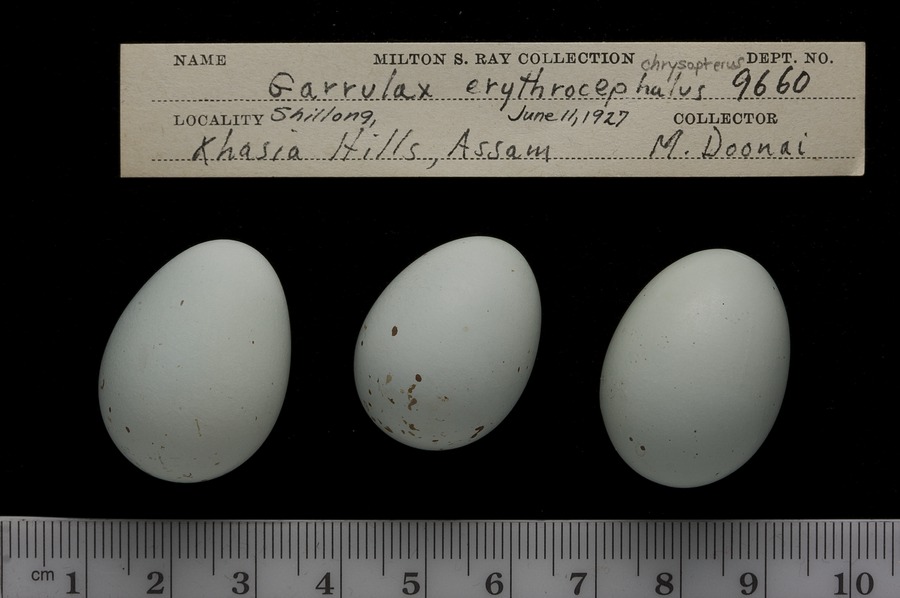 NAME MILTON S. RAY COLLECTION chrysopterus DEPT. NO.
Garrulax erythrocephalus 9660
LOCALITY Shillong, June 11, 1927 COLLECTOR
Khasia Hills, Assam M. Doonai
cm 1 2 3 4 5 6 7 8 9 10